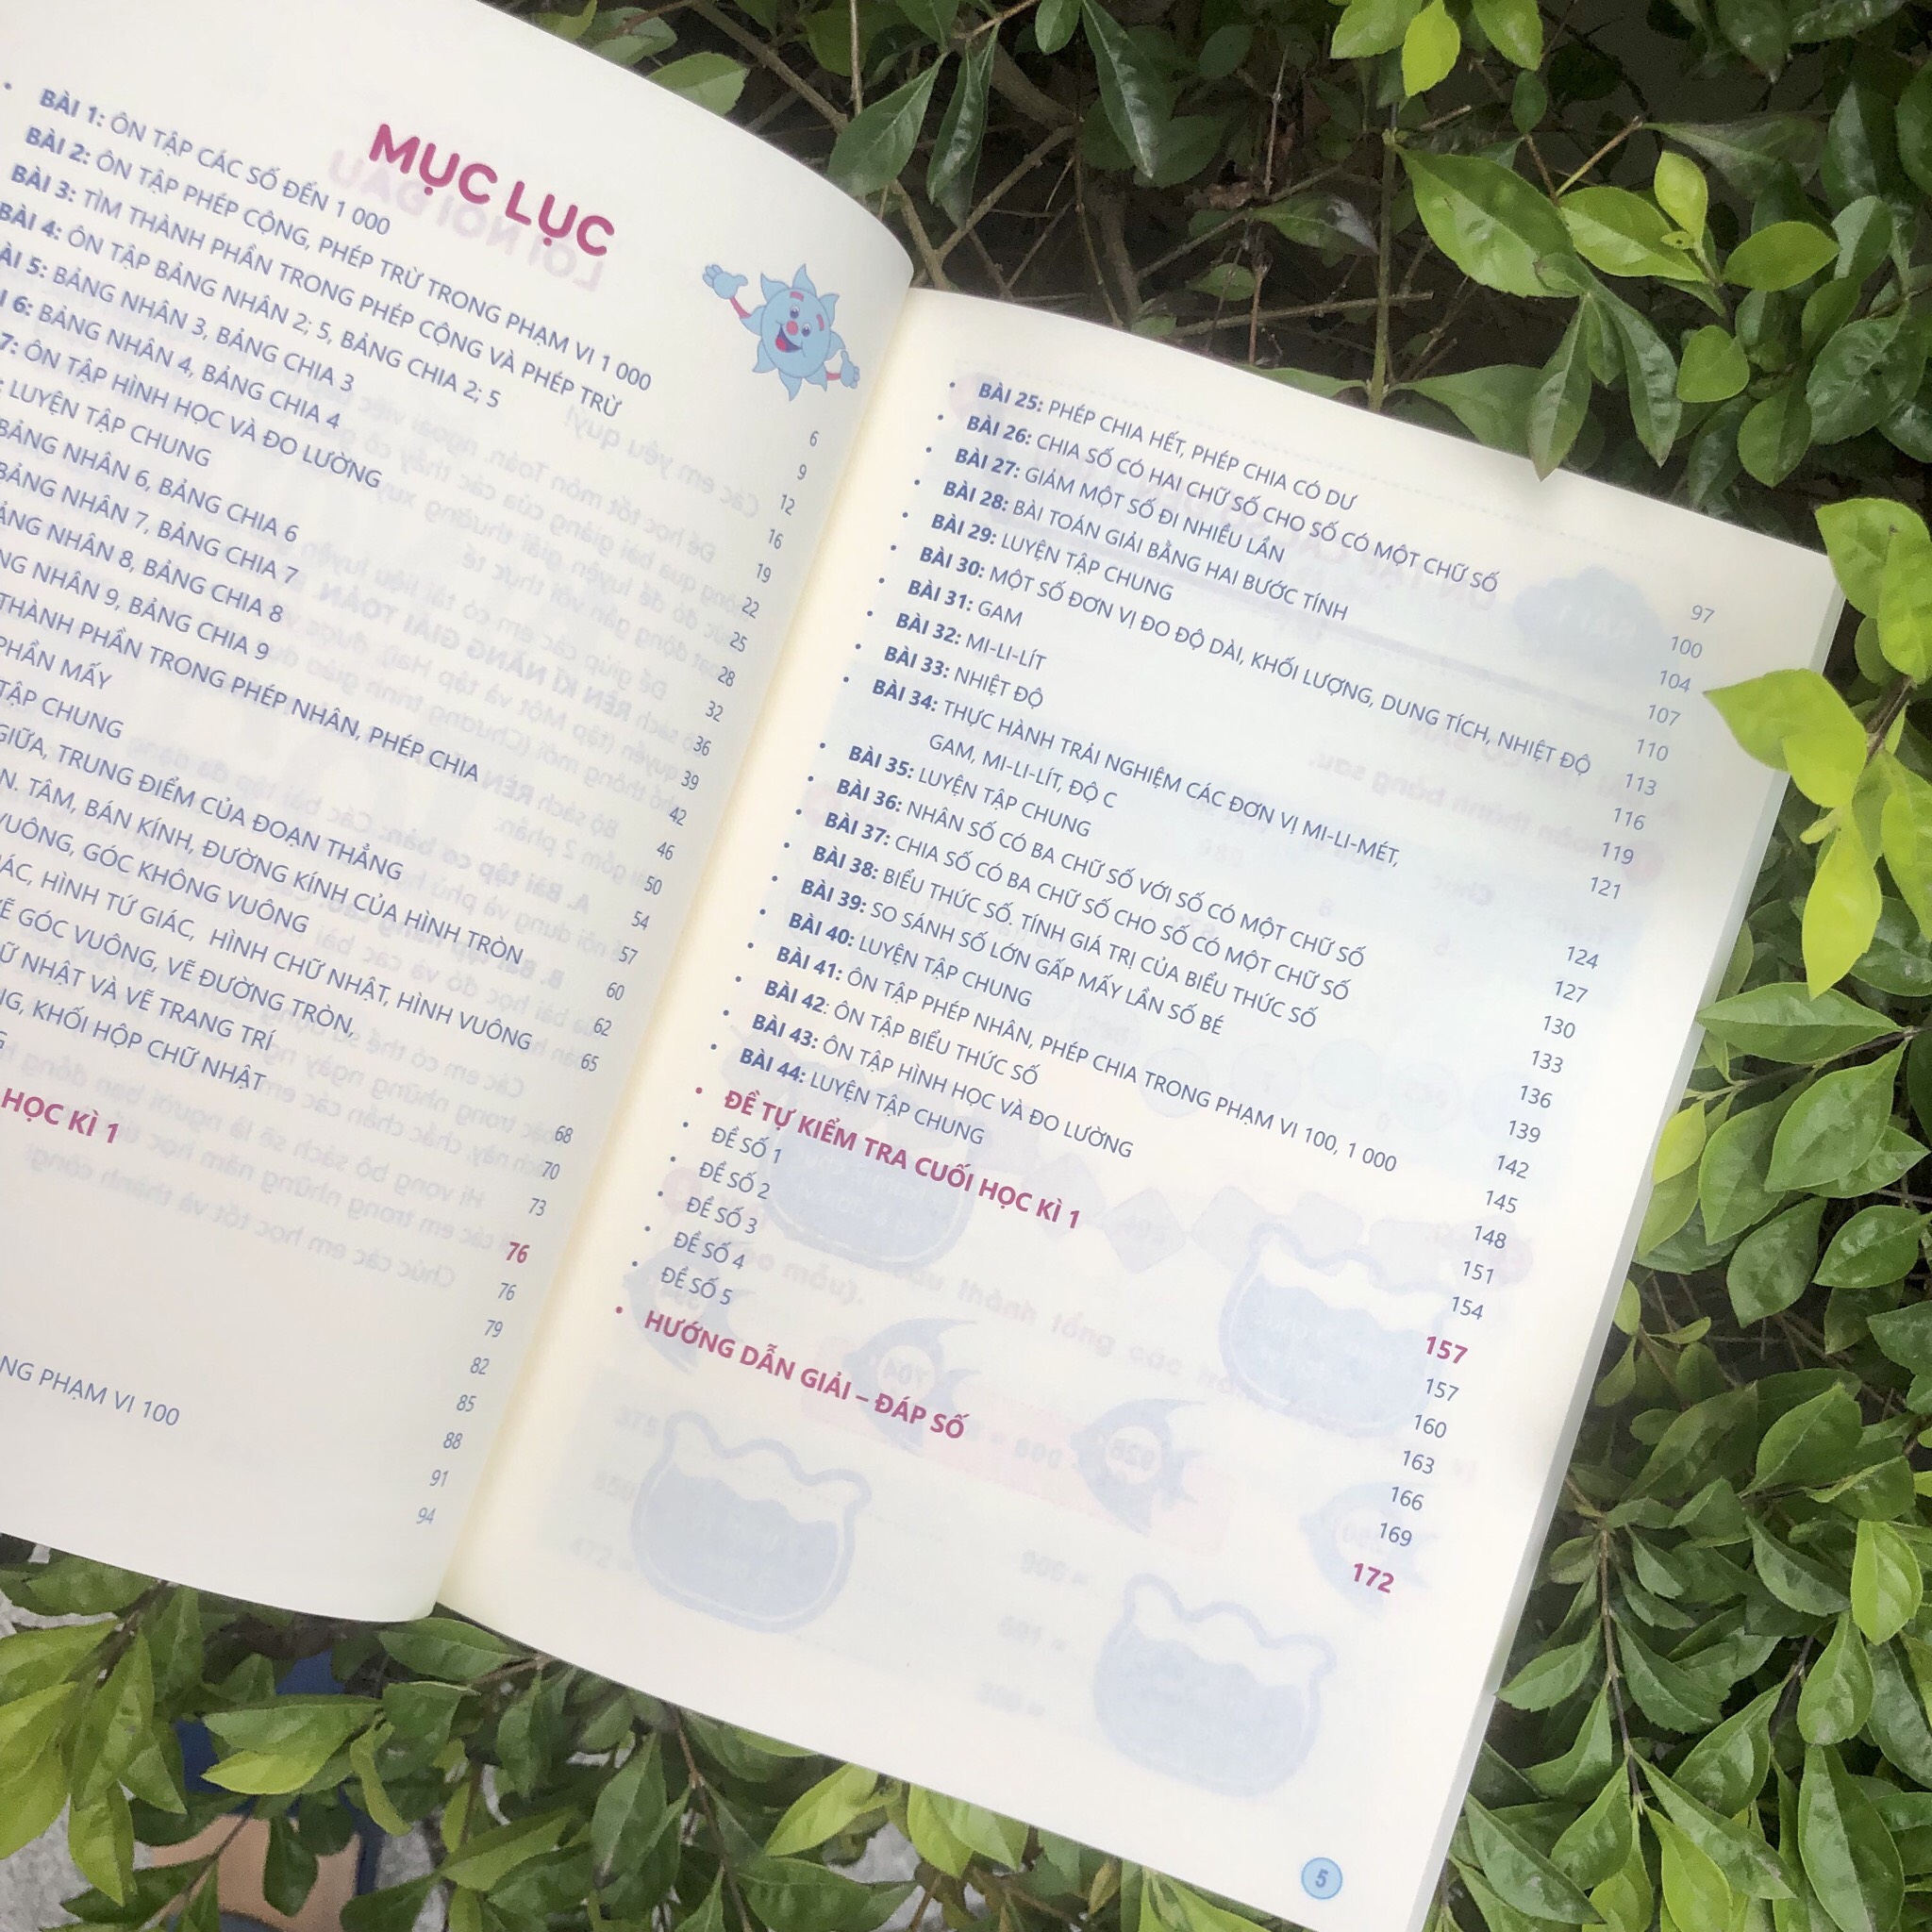 MỤC LỤC
BÀI 1: ÔN TẬP CÁC SỐ ĐẾN 1 000
BÀI 2: ÔN TẬP PHÉP CỘNG, PHÉP TRỪ TRONG PHẠM VI 1 000
BÀI 3: TÌM THÀNH PHẦN TRONG PHÉP CỘNG VÀ PHÉP TRỪ
BÀI 4: ÔN TẬP BẢNG NHÂN 2; 5, BẢNG CHIA 2; 5
5: BẢNG NHÂN 3, BẢNG CHIA 3
6: BẢNG NHÂN 4, BẢNG CHIA 4
7: ÔN TẬP HÌNH HỌC VÀ ĐO LƯỜNG
LUYỆN TẬP CHUNG
BẢNG NHÂN 6, BẢNG CHIA 6
BẢNG NHÂN 7, BẢNG CHIA 7
NHÂN 8, BẢNG CHIA 8
NHÂN 9, BẢNG CHIA 9
THÀNH PHẦN TRONG PHÉP NHÂN, PHÉP CHIA
PHẦN MẤY
TẬP CHUNG
GIỮA, TRUNG ĐIỂM CỦA ĐOẠN THẲNG
TÂM, BÁN KÍNH, ĐƯỜNG KÍNH CỦA HÌNH TRÒN
VUÔNG, GÓC KHÔNG VUÔNG
HÌNH TỨ GIÁC, HÌNH CHỮ NHẬT, HÌNH VUÔNG
GÓC VUÔNG, VẼ ĐƯỜNG TRÒN,
NHẬT VÀ VẼ TRANG TRÍ
KHỐI HỘP CHỮ NHẬT
HỌC KÌ 1
PHẠM VI 100
6
9
12
16
19
22
25
28
32
36
39
42
46
50
54
57
60
62
65
68
70
73
76
76
79
82
85
88
91
94
• BÀI 25: PHÉP CHIA HẾT, PHÉP CHIA CÓ DƯ 97
• BÀI 26: CHIA SỐ CÓ HAI CHỮ SỐ CHO SỐ CÓ MỘT CHỮ SỐ 100
• BÀI 27: GIẢM MỘT SỐ ĐI NHIỀU LẦN 104
• BÀI 28: BÀI TOÁN GIẢI BẰNG HAI BƯỚC TÍNH 107
• BÀI 29: LUYỆN TẬP CHUNG 110
• BÀI 30: MỘT SỐ ĐƠN VỊ ĐO ĐỘ DÀI, KHỐI LƯỢNG, DUNG TÍCH, NHIỆT ĐỘ 113
• BÀI 31: GAM 116
• BÀI 32: MI-LI-LÍT 119
• BÀI 33: NHIỆT ĐỘ 121
• BÀI 34: THỰC HÀNH TRẢI NGHIỆM CÁC ĐƠN VỊ MI-LI-MÉT,
GAM, MI-LI-LÍT, ĐỘ C 124
• BÀI 35: LUYỆN TẬP CHUNG 127
• BÀI 36: NHÂN SỐ CÓ BA CHỮ SỐ VỚI SỐ CÓ MỘT CHỮ SỐ 130
• BÀI 37: CHIA SỐ CÓ BA CHỮ SỐ CHO SỐ CÓ MỘT CHỮ SỐ 133
• BÀI 38: BIỂU THỨC SỐ. TÍNH GIÁ TRỊ CỦA BIỂU THỨC SỐ 136
• BÀI 39: SO SÁNH SỐ LỚN GẤP MẤY LẦN SỐ BÉ 139
• BÀI 40: LUYỆN TẬP CHUNG 142
• BÀI 41: ÔN TẬP PHÉP NHÂN, PHÉP CHIA TRONG PHẠM VI 100, 1 000 145
• BÀI 42: ÔN TẬP BIỂU THỨC SỐ 148
• BÀI 43: ÔN TẬP HÌNH HỌC VÀ ĐO LƯỜNG 151
• BÀI 44: LUYỆN TẬP CHUNG 154
• ĐỀ TỰ KIỂM TRA CUỐI HỌC KÌ 1 157
• ĐỀ SỐ 1 157
• ĐỀ SỐ 2 160
• ĐỀ SỐ 3 163
• ĐỀ SỐ 4 166
• ĐỀ SỐ 5 169
• HƯỚNG DẪN GIẢI – ĐÁP SỐ 172
5